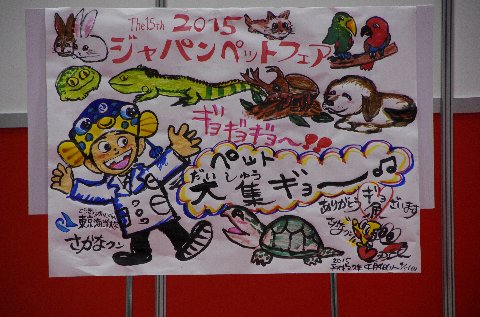 The 15th 2015
ジャパンペットフェア
ギョギョギョ〜!!
ペット
だいしゅう
大集ギョー♪
ありがとうギョざいます
東京海洋大学
さかなクン
2015